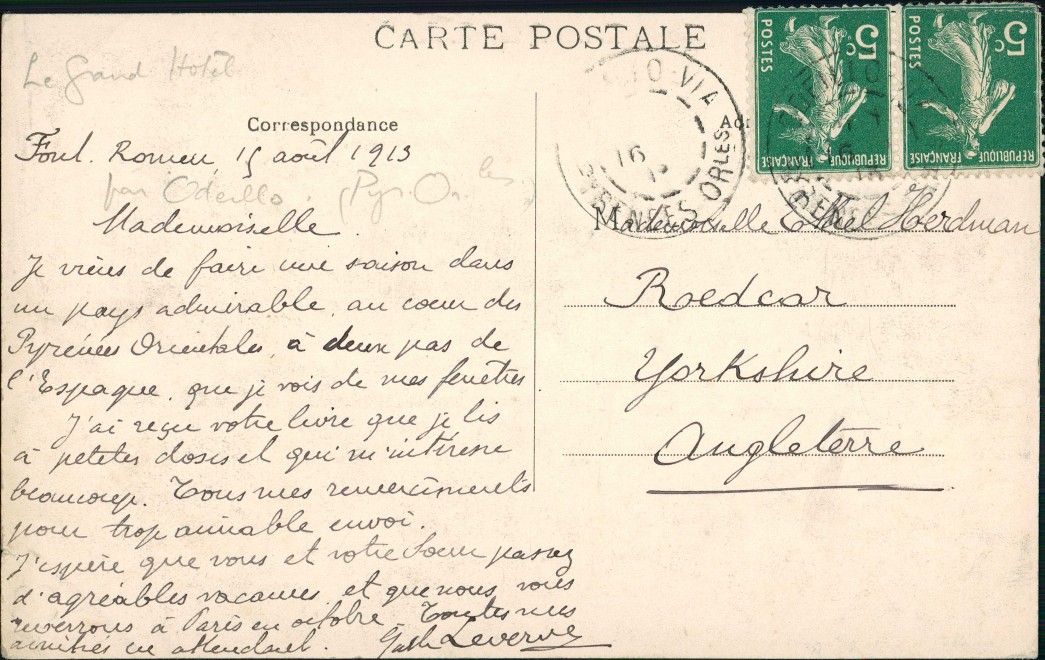 CARTE POSTALE
Le Grand Hotel
Correspondance
Font. Romeu 15 août 1913
par Odeillo. (Pyr. Or. les
Mademoiselle.
Je viens de faire une saison dans
un pays admirable, au cœur des
Pyrénées Orientales, à deux pas de
l'Espagne, que je vois de mes fenêtres.
J'ai reçu votre livre que je lis
à petites doses et qui m'intéresse
beaucoup. Tous mes remerciments
pour trop aimable envoi.
J'espère que vous et votre Soeur passez
d'agréables vacances, et que nous vous
reverrons à Paris en octobre. Toutes mes
amitiés en attendant. Leverve
5c
POSTES
REPUBLIQUE FRANÇAISE
5c
POSTES
REPUBLIQUE FRANÇAISE
VIA
16
PYRENEES ORLES
Mademoiselle Ethel Herdman
Roedcar
Yorkshire
Angleterre